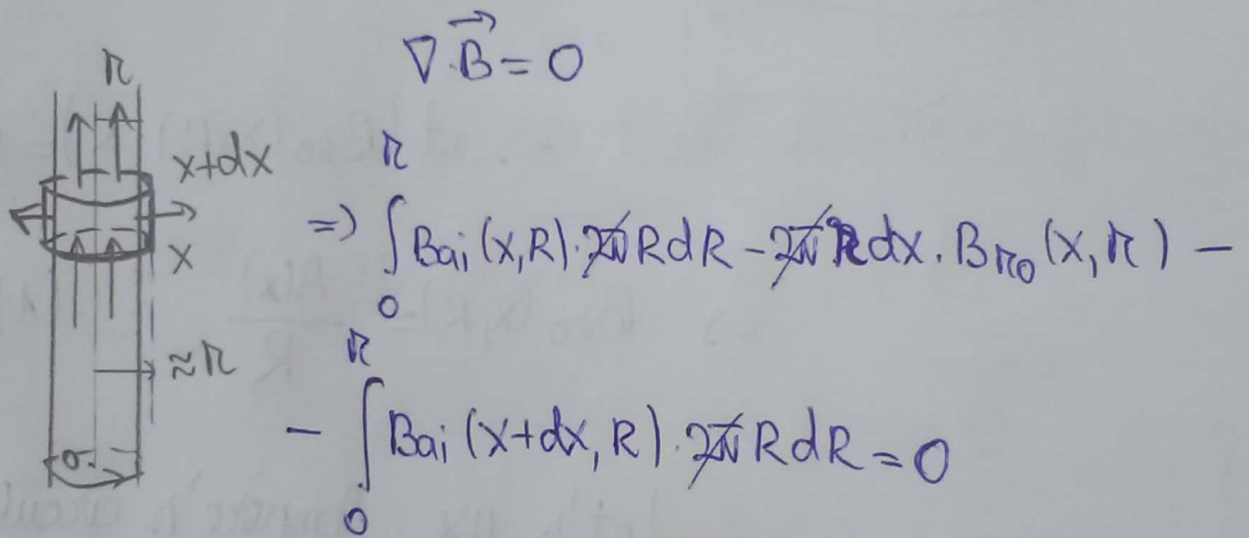 ∇·B⃗ = 0
r
x+dx
x
≈r
σ.
=) ∫₀ʳ Bai(x,R)·2πRdR − 2πrdx·Bro(x,r) −
− ∫₀ʳ Bai(x+dx,R)·2πRdR = 0